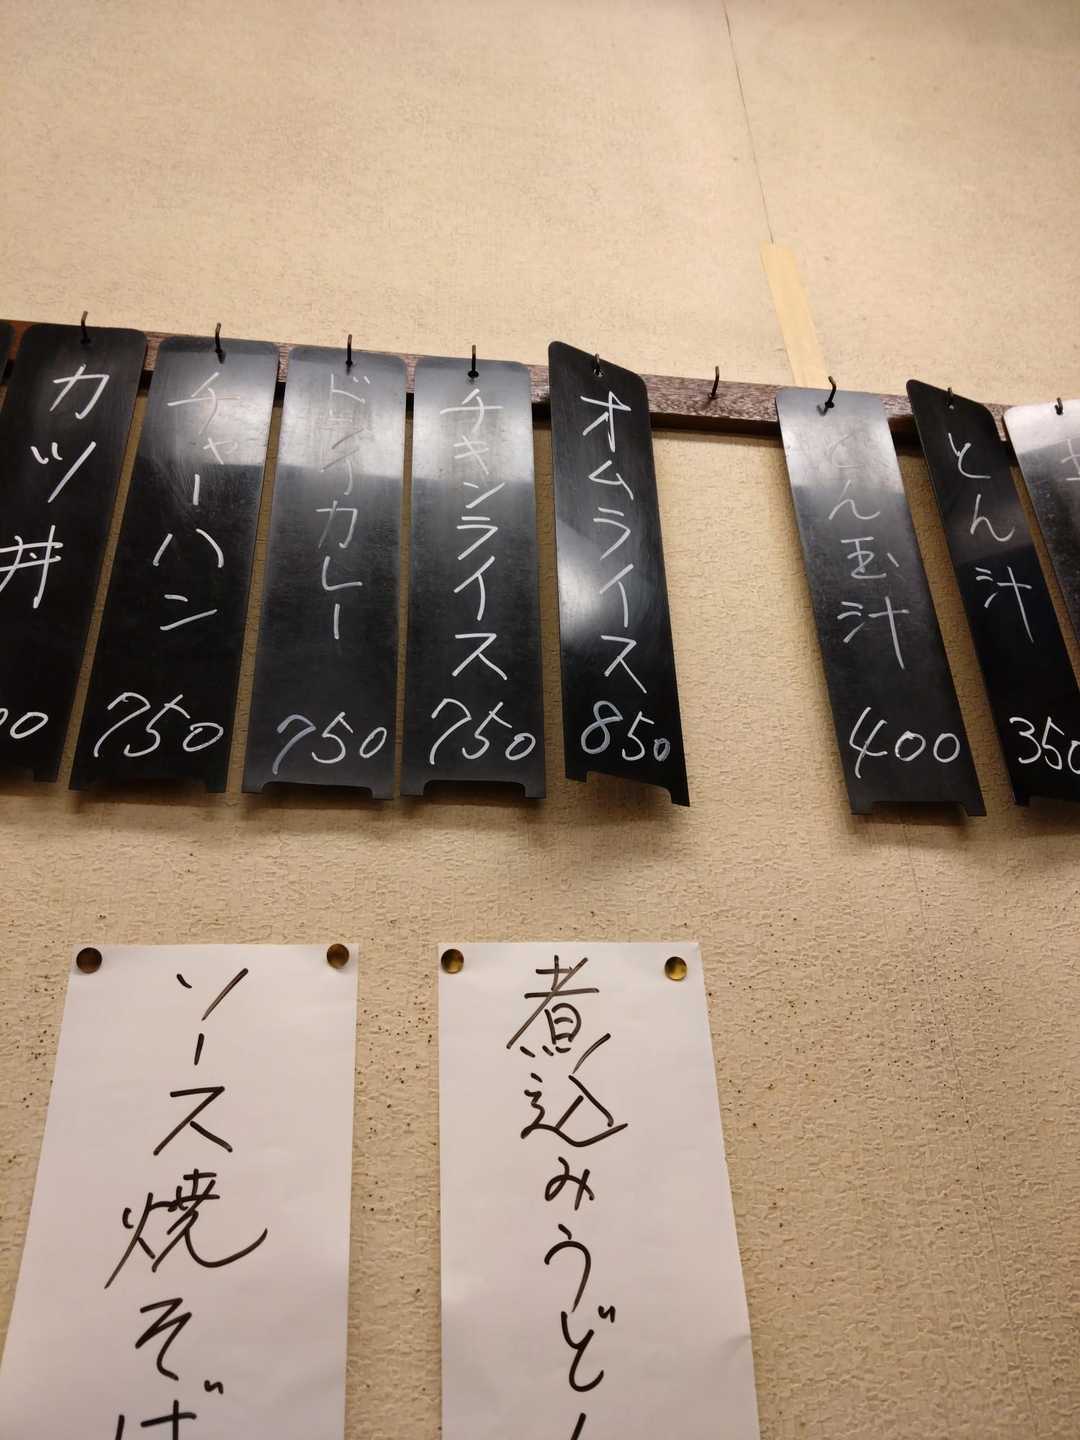 カツ丼
チャーハン
750
ドライカレー
750
チキンライス
750
オムライス
850
とん玉汁
400
とん汁
350
ソース焼そば
煮込みうどん